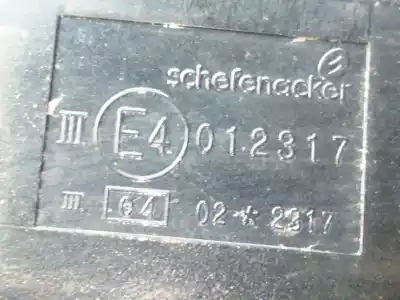 schefenacker
III E4 012317
III e4 02*2317